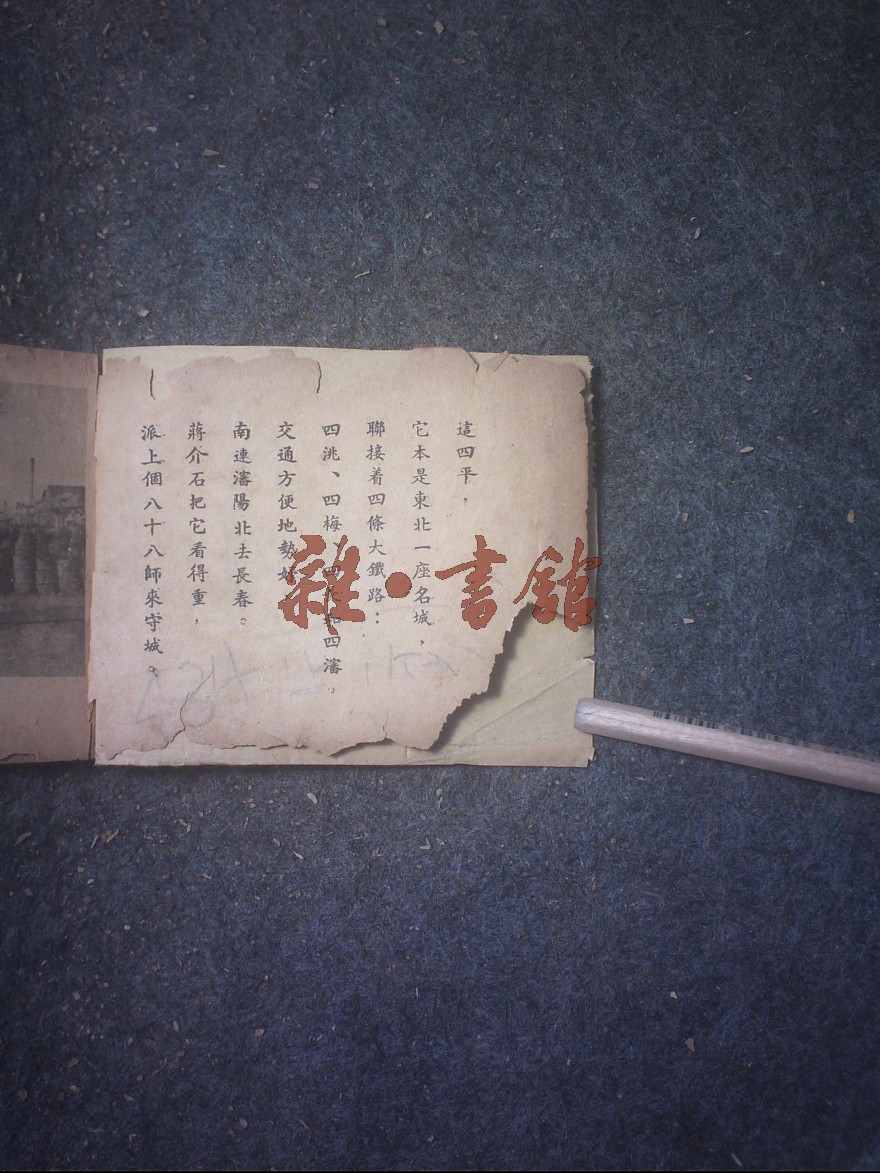 這四平，
它本是東北一座名城，
聯接着四條大鐵路：
四洮、四梅、四長和四瀋。
交通方便地勢好，
南連瀋陽北去長春。
蔣介石把它看得重，
派上個八十八師來守城。
雜·書館